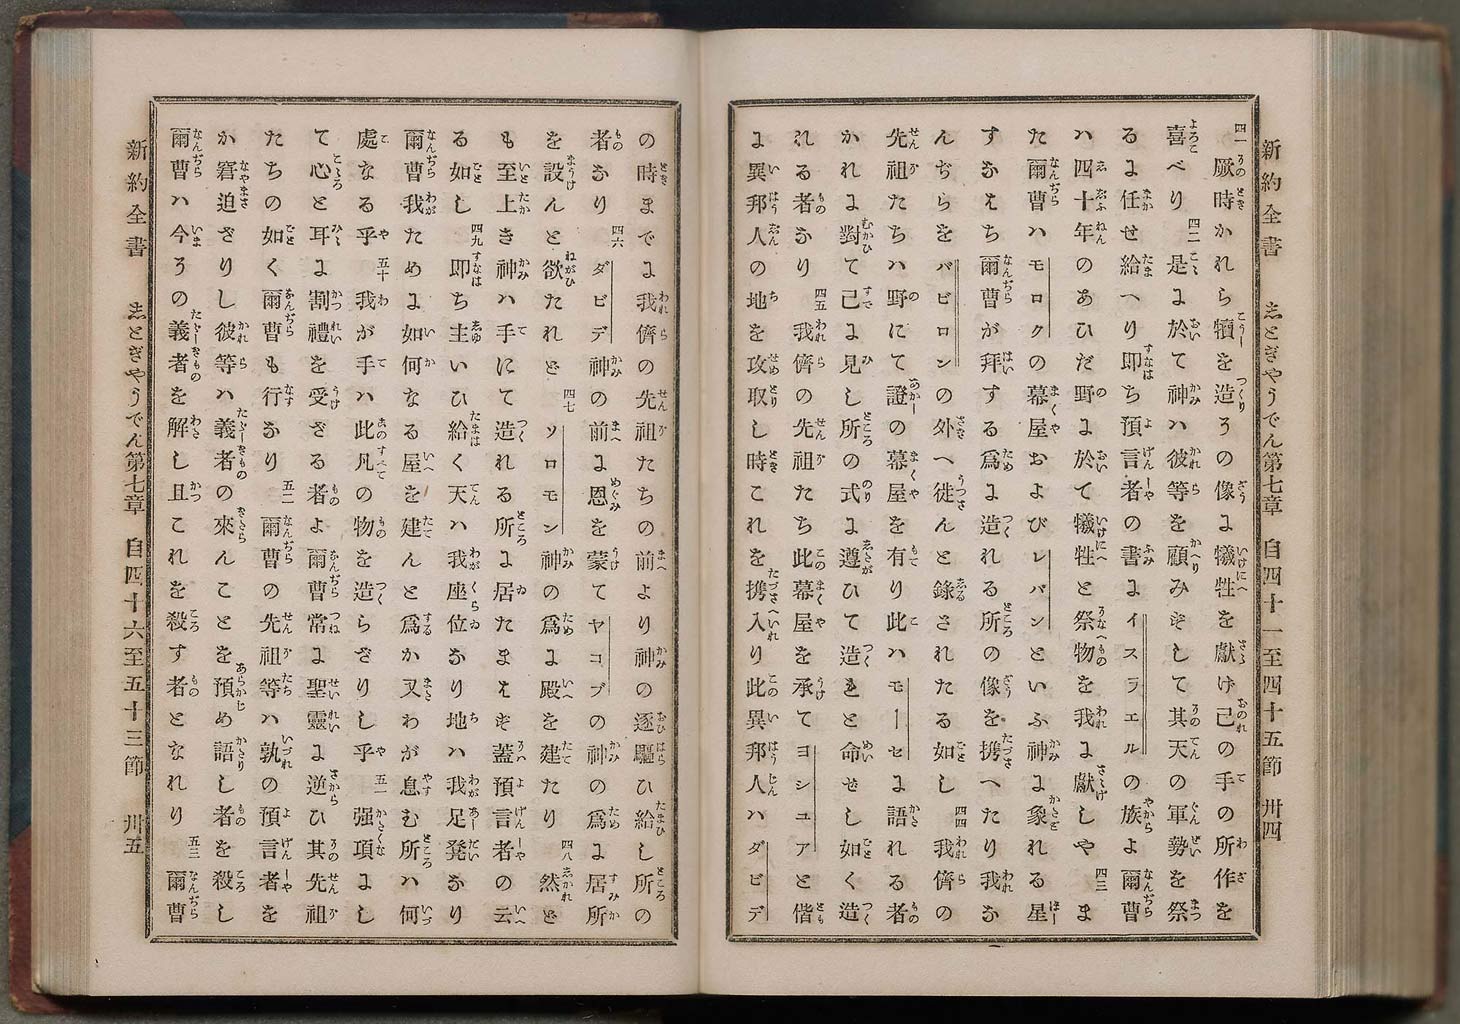 新約全書 志とぎやうでん第七章 自四十一至四十五節 卅四
四一 厥時かれら犢を造りの像に犧牲を獻け己の手の所作を
喜べり 四二 是に於て神ハ彼等を顧みずして其天の軍勢を祭
るに任せ給へり即ち預言者の書にイスラエルの族よ爾曹
ハ四十年のあひだ野に於て犧牲と祭物を我に獻しや 四三 ま
た爾曹ハモロクの幕屋およびレバンといふ神に象れる星
すなはち爾曹が拜する爲に造れる所の像を携へたり我な
んぢらをバビロンの外へ徙んと錄されたるが如し 四四 我儕の
先祖たちハ野にて證の幕屋を有り此ハモーセに語れる者
かれに對て己に見し所の式に遵ひて造と命せし如く造
れる者なり 四五 我儕の先祖たち此幕屋を承てヨシユアと偕
に異邦人の地を攻取し時これを携入り此異邦人ハダビデ
の時までに我儕の先祖たちの前より神の逐驅ひ給し所の
者なり 四六 ダビデ神の前に恩を蒙てヤコブの神の爲に居所
を設んと欲たれど 四七 ソロモン神の爲に殿を建たり 四八 然ど
も至上き神ハ手にて造れる所に居たまはず蓋預言者の云
る如し 四九 即ち主いひ給く天ハ我座位なり地ハ我足凳なり
爾曹我ために如何なる屋を建んと爲か又わが息む所ハ何
處なる乎 五十 我が手ハ此凡の物を造らざりし乎 五一 强項にし
て心と耳に割禮を受ざる者よ爾曹常に聖靈に逆ひ其先祖
たちの如く爾曹も行なり 五二 爾曹の先祖等ハ孰の預言者を
か窘迫ざりし彼等ハ義者の來んことを預め語し者を殺し
爾曹ハ今その義者を解し且これを殺す者となれり 五三 爾曹
新約全書 志とぎやうでん第七章 自四十六至五十三節 卅五